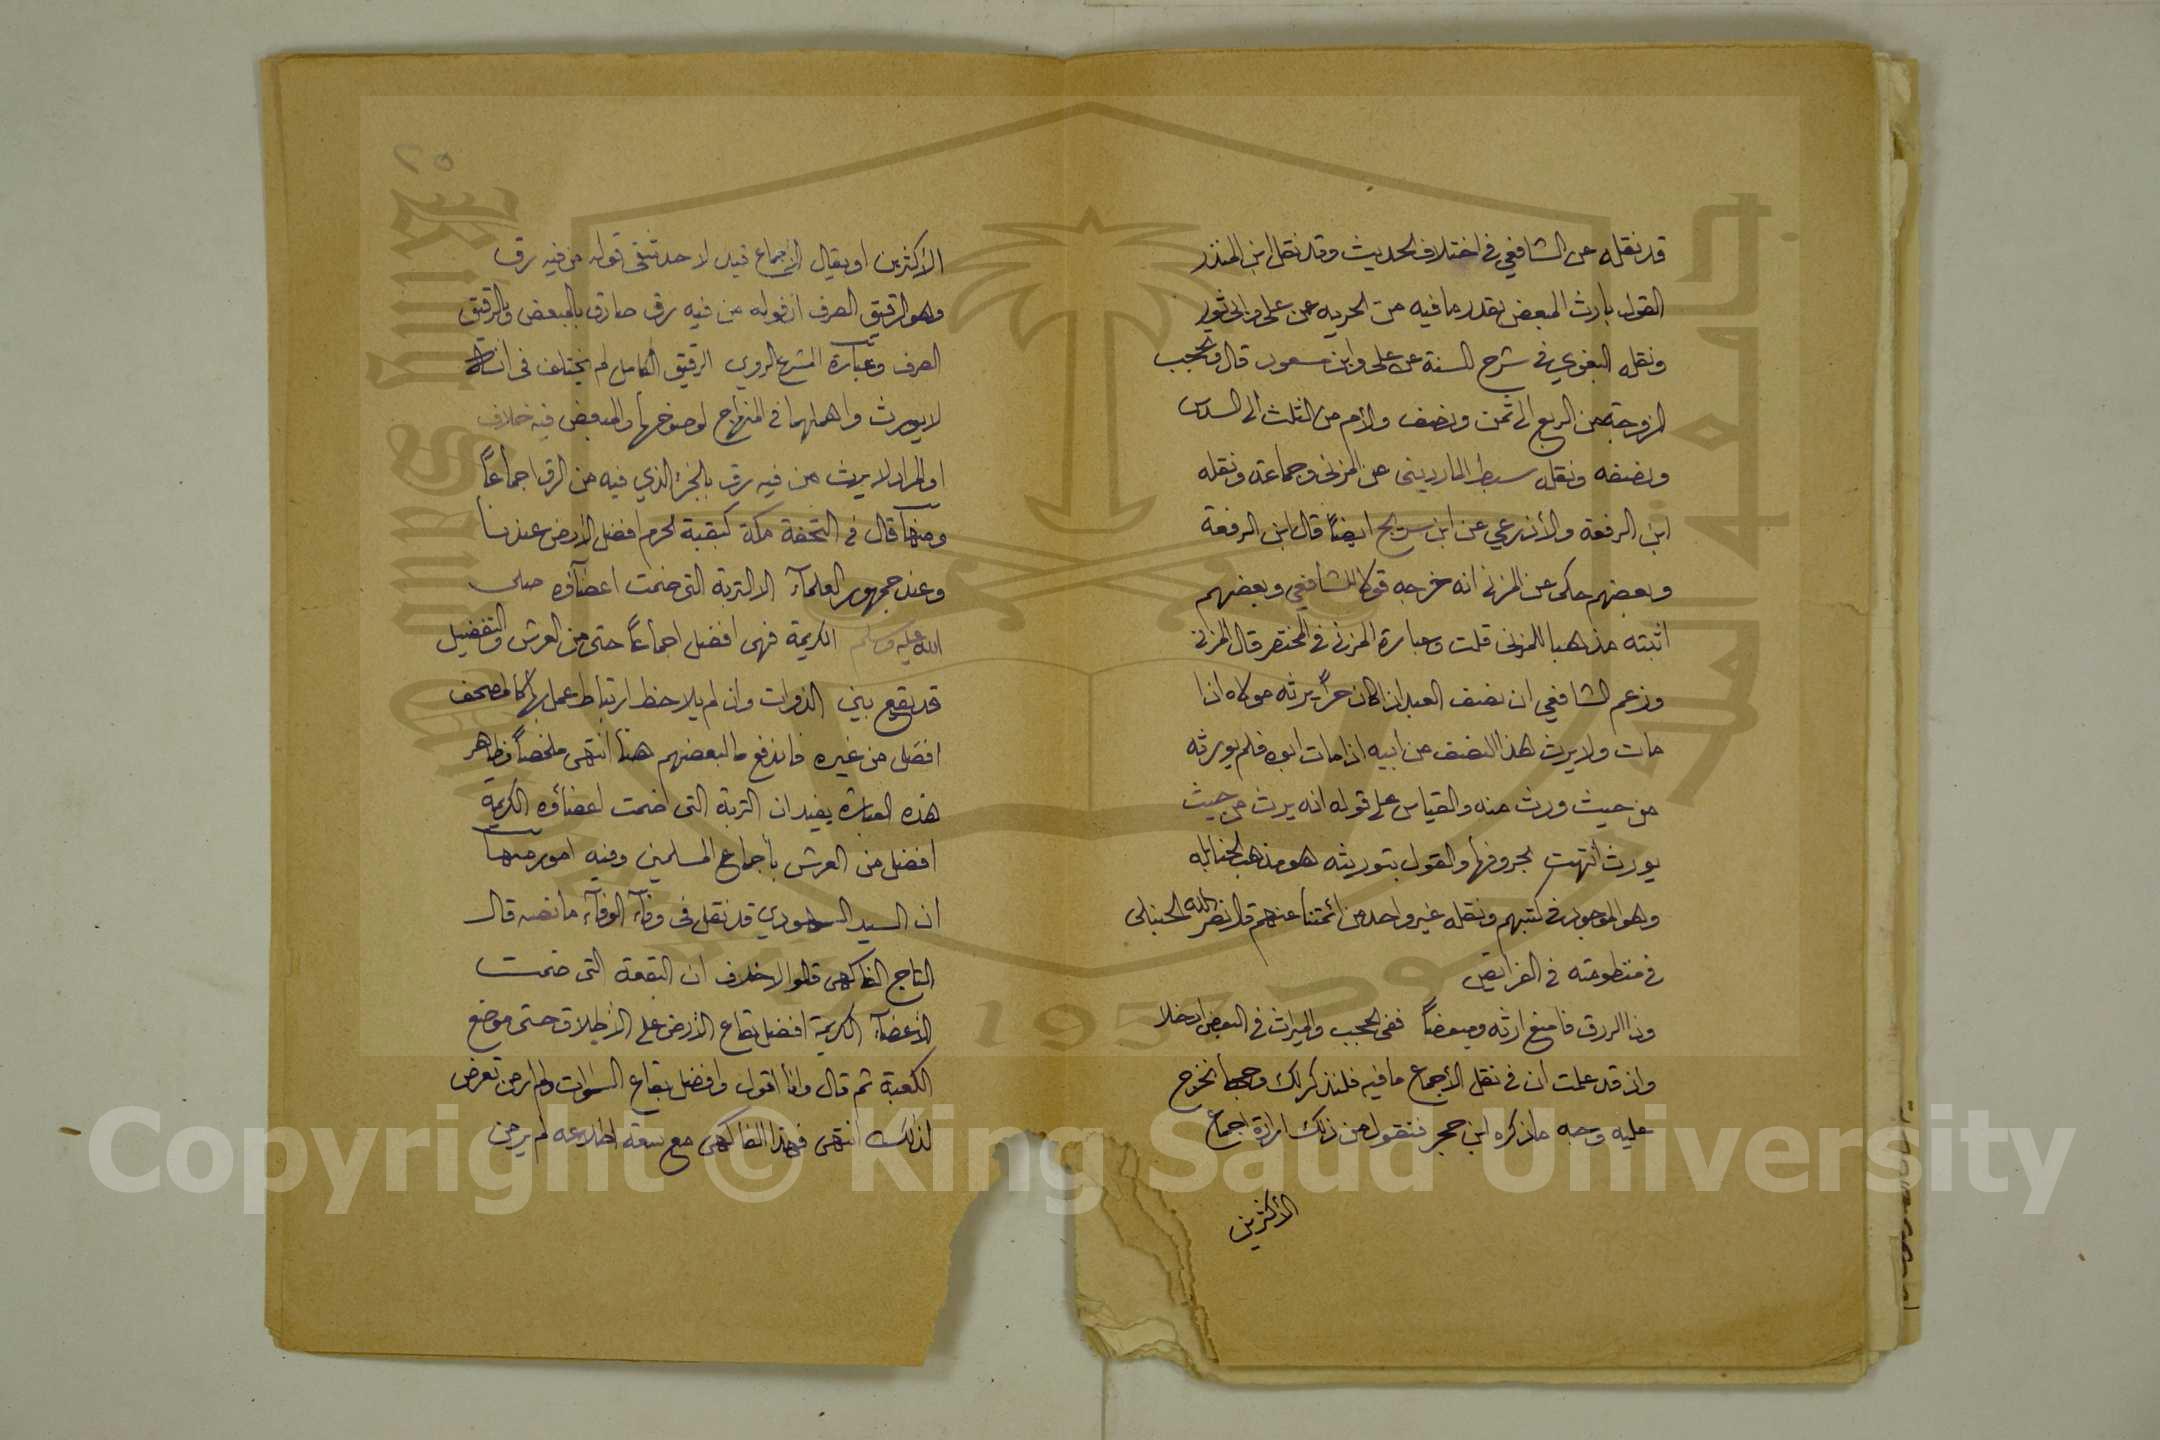 قد نقله عن الشافعي في اختلاف الحديث وقد نقل ابن المنذر
القول بارث المبعض بقدر ما فيه من الحريه عن علي وابي ثور
ونقله البغوي في شرح السنة عن علي وابن مسعود قال وتحجب
الزوجة من الربع الى ثمن ونصف والأم من الثلث الى السدس
ونصفه ونقله سبط المارديني عن المزني وجماعة ونقله
ابن الرفعة والأذرعي عن ابن سريج ايضاً قال ابن الرفعة
وبعضهم حكى عن المزني انه خرجه قولا للشافعي وبعضهم
اثبته مذهبا للمزني قلت وعبارة المزني في المختصر قال المزني
وزعم الشافعي ان نصف العبد اذا كان حراً يرثه مولاه اذا
مات ولا يرث هذا النصف من ابيه اذا مات ابوه فلم يورثه
من حيث ورث منه والقياس على قوله انه يرث من حيث
يورث انتهت بحروفها والقول بتوريثه هو مذهب الحنابله
وهو الموجود في كتبهم ونقله غير واحد من ائمتنا عنهم قال الحنبلى
في منظومته في الفرايض
وذا الرق فامنع ارثه ومبعضاً ففي الحجب والميراث في البعض ادخلا
واذ قد علمت ان في نقل الأجماع ما فيه فلنذكر لك وجها نخرج
عليه وجه ما ذكره ابن حجر فنقول من ذلك ارادة اجماع
الأكثرين
٢٥
الأكثرين او يقال الأجماع قيد لاحد شقي قوله من فيه رق
وهو الرقيق الصرف اذ قوله من فيه رق صادق بالمبعض والرقيق
الصرف وعبارة المشرع الروي الرقيق الكامل لم يختلف في انه
لا يورث واهملهما في المنهاج لوضوحهما والمبعض فيه خلاف
او المراد لا يرث من فيه رق بالجزء الذي فيه من الرق اجماعاً
ومنها قال في التحفة مكة كبقية الحرم افضل الأرض عندنا
وعند جمهور العلمآء الا التربة التي ضمت اعضآؤه صلى
الله عليه وسلم الكريمة فهي افضل اجماعاً حتى من العرش والتفضيل
قد يقع بين الذوات وان لم يلاحظ ارتباط عمل بها كالمصحف
افضل من غيره فاندفع ما لبعضهم هنا انتهى ملخصاً وظاهر
هذه العبارة يفيد ان التربة التي ضمت اعضائه الكريمة
افضل من العرش بأجماع المسلمين وفيه امور منها
ان السيد السمهودي قد نقل في وفآء الوفآء ما نصه قال
التاج الفاكهى قالوا لا خلاف ان البقعة التى ضمت
الأعضآء الكريمة افضل بقاع الأرض على الأطلاق حتى موضع
الكعبة ثم قال وانا اقول وافضل بقاع السموات ولم ار من تعرض
لذلك انتهى فهذا الفاكهى مع سعة اطلاعه لم ير من
Copyright © King Saud University
1957